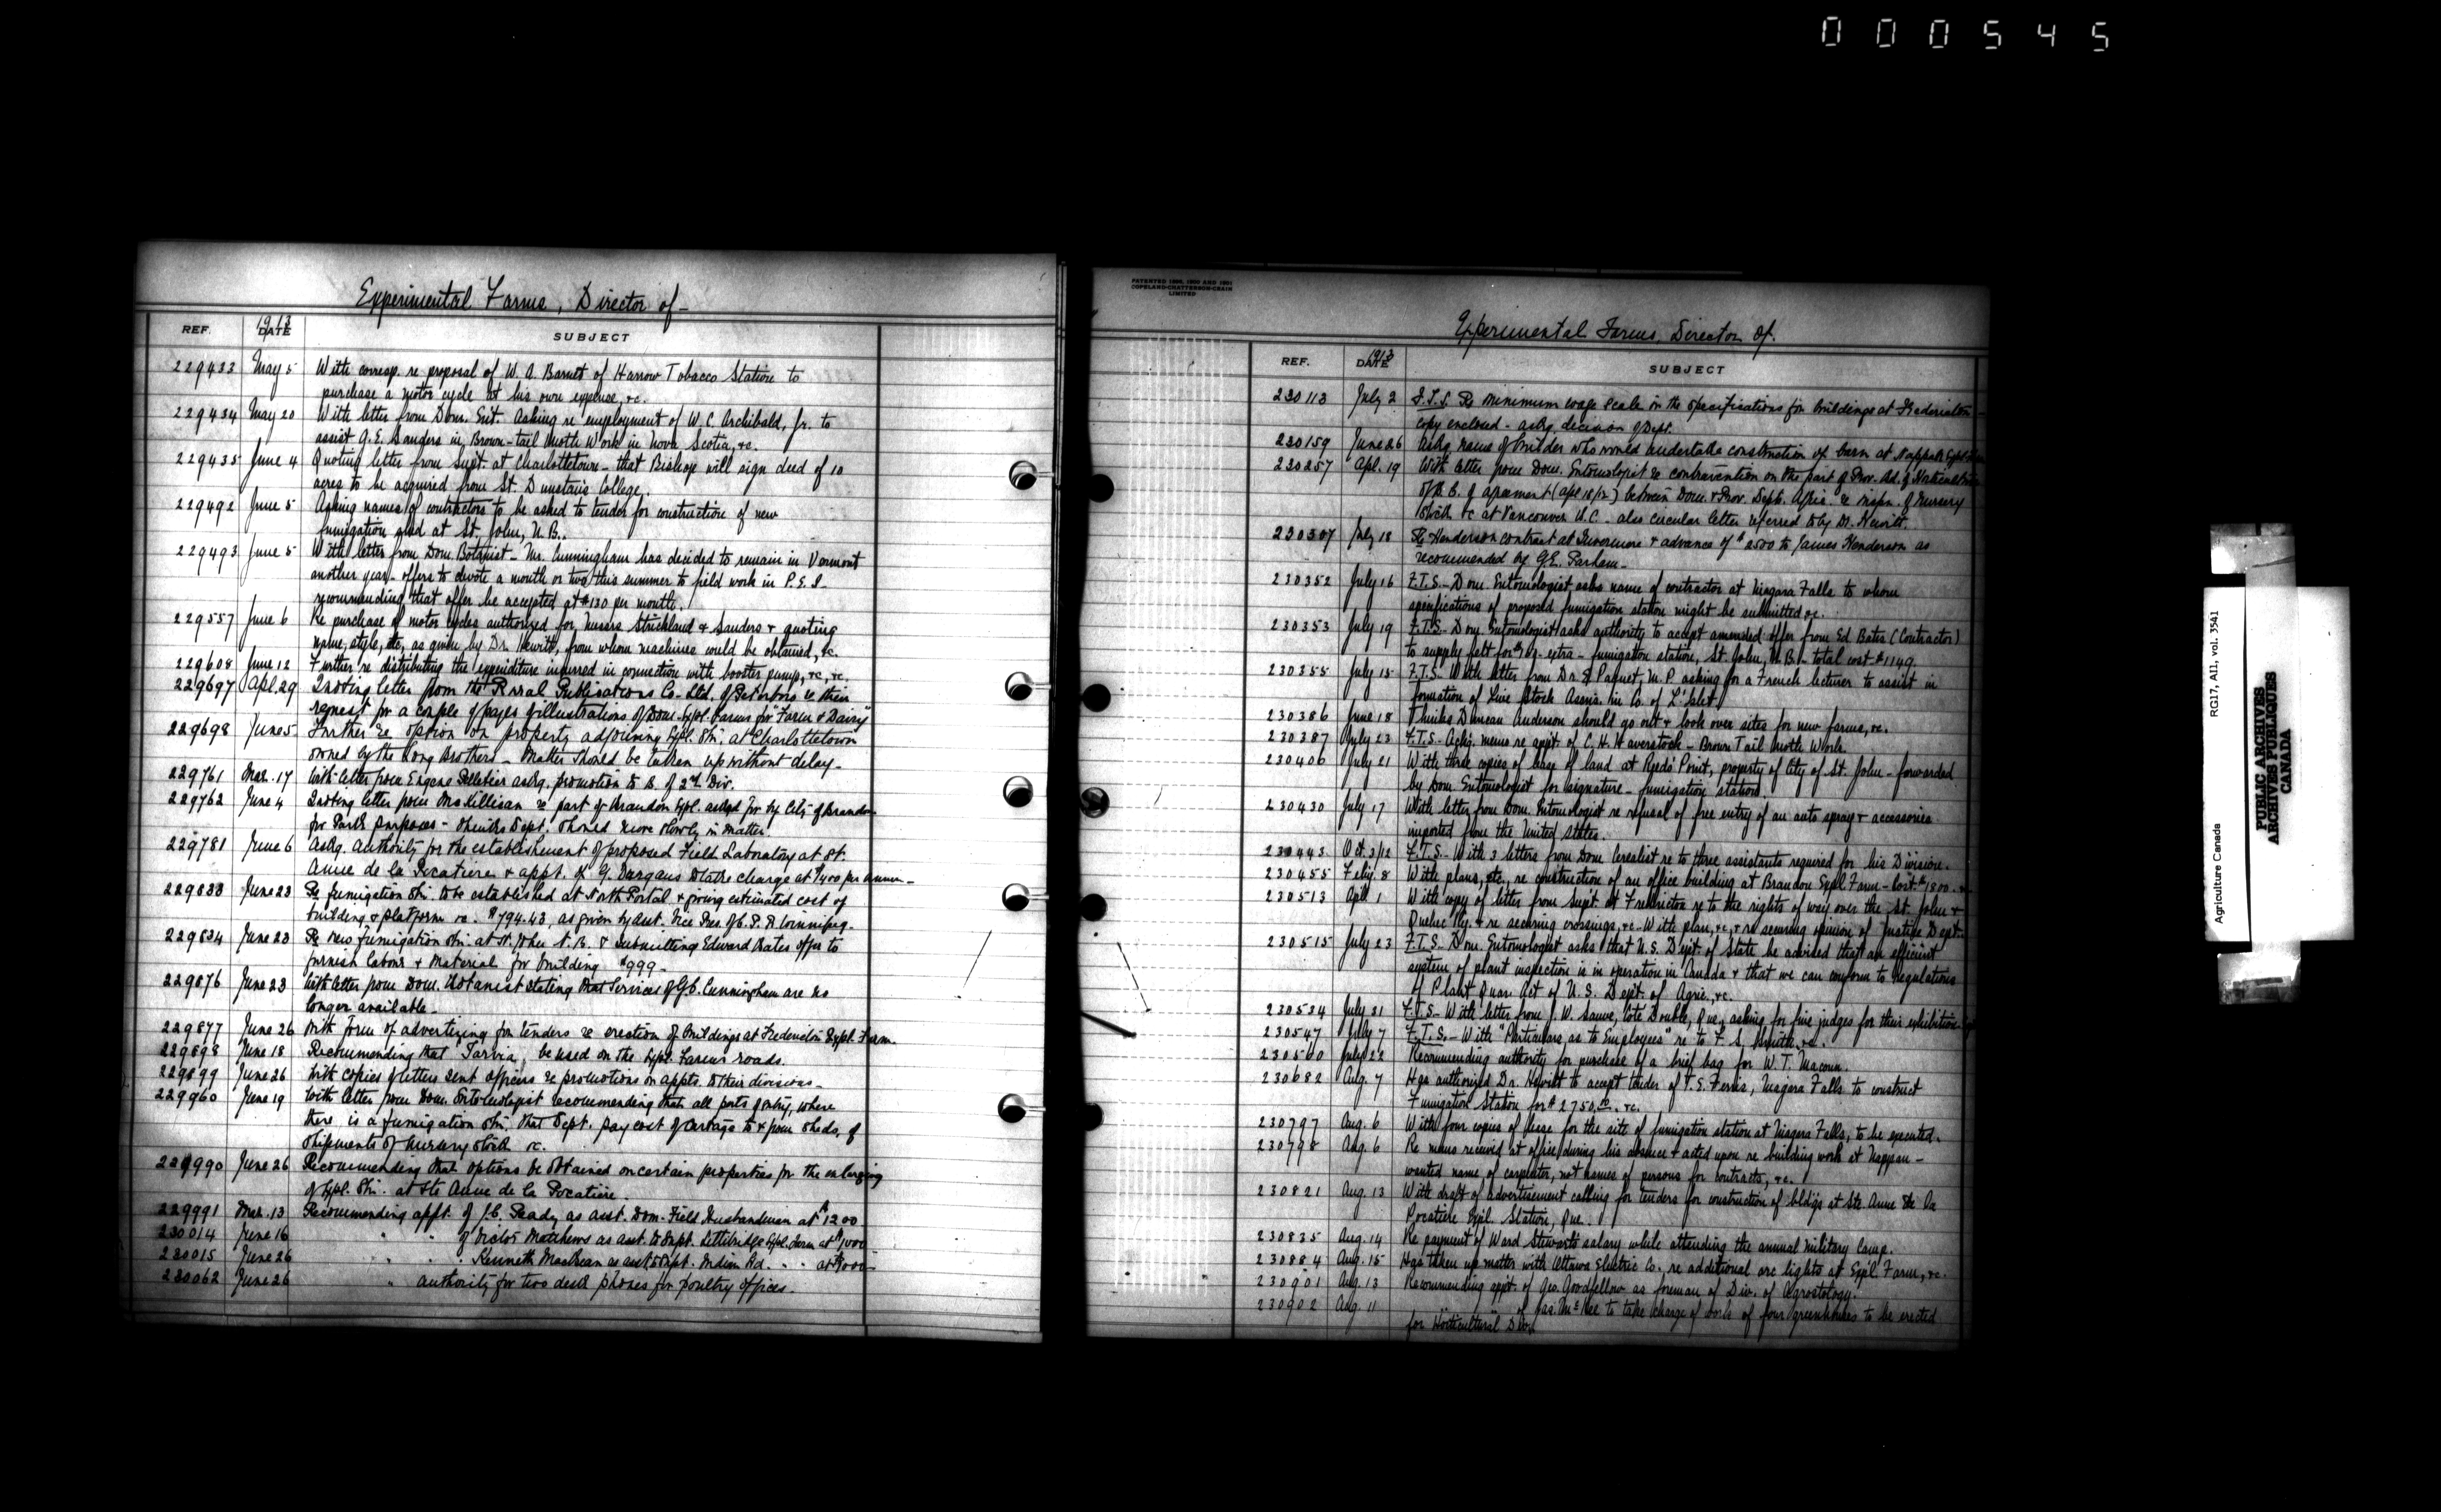 000545
Experimental Farms, Director of -
REF. 1913 DATE SUBJECT
229433 May 5 With corresp. re proposal of W. A. Barnet of Harrow Tobacco Station to
purchase a motor cycle at his own expense, &c.
229434 May 20 With letter from Dom. Ent. asking re employment of W. C. Archibald, Jr. to
assist G. E. Sanders in Brown-tail Moth Work in Nova Scotia, &c.
229435 June 4 Quoting letter from Supt. at Charlottetown - that Bishop will sign deed of 10
acres to be acquired from St. Dunstan's College.
229492 June 5 Asking names of contractors to be asked to tender for construction of new
fumigation at St. John, N.B.
229493 June 5 With letter from Dom. Botanist - Mr. Cunningham has decided to remain in Vermont
another year - offers to devote a month or two this summer to field work in P.E.I. -
recommending that offer be accepted at $130 per month.
229557 June 6 Re purchase of motor cycles authorized for Messrs Strickland & Sanders & quoting
name, style, etc, as given by Dr. Hewitt, from whom machines could be obtained, &c.
229608 June 12 Further re distributing the expenditure incurred in connection with booster pump, &c, &c.
229697 Apl. 29 Quoting letter from the Rural Publications Co. Ltd. of Peterboro re their
request for a couple of pages of illustrations of Dom. Expl. Farms for "Farm & Dairy"
229698 June 5 Further re option on property adjoining Expl. Stn. at Charlottetown
owned by the Long Brothers - Matter should be taken up without delay -
229761 Mar. 17 With letter from Eugene Pelletier askg. promotion to B. of 2nd Div.
229762 June 4 Quoting letter from McKillican re part of Brandon Expl. asked for by City of Brandon
for Park purposes - thinks Dept. should move slowly in matter
229781 June 6 Askg. authority for the establishment of proposed Field Laboratory at St.
Anne de la Pocatiere & appt. of G. to take charge at $1400 per annum -
229833 June 23 Re fumigation Stn. to be established at North Portal & giving estimated cost of
building & platform $794.43, as given by asst. Vice Pres. of C.P.R. Winnipeg.
229834 June 23 Re new fumigation Stn. at St. John N.B. & submitting Edward Bates offer to
furnish labour & material for building $999 -
229876 June 23 With letter from Dom. Botanist stating that services of G.C. Cunningham are no
longer available -
229877 June 26 With form of advertizing for tenders re erection of Buildings at Fredericton Expl. Farm.
229898 June 18 Recommending that "Tarvia" be used on the Expl. Farms roads.
229899 June 26 With copies of letters sent officers re promotions on appts. to their divisions -
229960 June 19 With letter from Dom. Entomologist recommending that all ports of entry, where
there is a fumigation Stn. that Dept. pay cost of cartage to & from sheds, of
shipments of nursery stock &c.
229990 June 26 Recommending that options be obtained on certain properties for the enlarging
of Expl. Stn. at Ste Anne de la Pocatiere.
229991 Mar. 13 Recommending appt. of J.C. Ready as asst. Dom. Field Husbandman at $1200
230014 June 16 " " of Victor Matthews as asst. to Supt. Lethbridge Expl. Farm at $1000
230015 June 26 " " Kenneth MacBean as asst. to Supt. Indian Hd. " " at $1000
230062 June 26 " authority for two desk phones for poultry offices.
PATENTED 1898, 1900 AND 1901
COPELAND-CHATTERSON-CRAIN
LIMITED
Experimental Farms, Director of.
REF. 1913 DATE SUBJECT
230113 July 2 F.T.S. Re minimum wage scale in the specifications for buildings at Fredericton -
copy enclosed - askg. decision of Dept.
230159 June 26 Askg. name of builder who would undertake construction of barn at Nappan Expl.
230257 Apl. 19 With letter from Dom. Entomologist re contravention on the part of Prov. Bd. of Horticulture
of B.C. of agreement (Apl 18/12) between Dom. & Prov. Depts. Agric. re inspn. of nursery
stock &c at Vancouver B.C. - also circular letter referred to by Dr. Hewitt.
230307 July 18 Re Henderson contract at Invermere & advance of $2500 to James Henderson as
recommended by G.E. Parham -
230352 July 16 F.T.S. - Dom. Entomologist asks name of contractor at Niagara Falls to whom
specifications of proposed fumigation station might be submitted &c.
230353 July 19 F.T.S. - Dom. Entomologist asks authority to accept amended offer from Ed Bates (Contractor)
to supply felt for extra - fumigation station, St. John, N.B. - total cost $1149.
230355 July 15 F.T.S. With letter from Dr. E. Paquet, M.P. asking for a French lecturer to assist in
formation of Live Stock Assns. in Co. of L'Islet.
230386 June 18 Thinks Duncan Anderson should go out & look over sites for new farms, &c.
230387 July 23 F.T.S. - Ackg. memo re appt. of C. H. Haverstock - Brown Tail Moth Work.
230406 July 21 With three copies of lease of land at Reeds' Point, property of City of St. John - forwarded
by Dom. Entomologist for signature - fumigation station
230430 July 17 With letter from Dom. Entomologist re refusal of free entry of an auto spray & accessories
imported from the United States.
230443 Oct. 3/12 F.T.S. - With 3 letters from Dom Cerealist re to three assistants required for his Division.
230455 Feby. 8 With plans, etc. re construction of an office building at Brandon Expl. Farm - Cost $1800.
230513 Apl. 1 With copy of letter from Supt. at Fredericton re to the rights of way over the St. John &
Quebec Ry. & re securing crossings, &c - With plan, &c, & re securing opinion of Justice Dept.
230515 July 23 F.T.S. - Dom. Entomologist asks that U.S. Dept. of State be advised that an efficient
system of plant inspection is in operation in Canada & that we can conform to regulations
of Plant Quar. Act of U.S. Dept. of Agric., &c.
230534 July 31 F.T.S. - With letter from J. W. Sauve, Cote Double, Que., asking for five judges for their exhibition
230547 July 7 F.T.S. - With "Particulars as to Employees" re to F. S. Smith, &c.
230560 July 22 Recommending authority for purchase of a brief bag for W. T. Macoun.
230682 Aug. 7 Has authorized Dr. Hewitt to accept tender of T. S. Ferris, Niagara Falls to construct
Fumigation Station for $2750.00. &c.
230797 Aug. 6 With four copies of lease for the site of fumigation station at Niagara Falls, to be executed.
230798 Aug. 6 Re memo received at office during his absence & acted upon re building work at Nappan -
wanted name of carpenter, not names of persons for contracts, &c.
230821 Aug. 13 With draft of advertisement calling for tenders for construction of bldgs at Ste. Anne de la
Pocatiere Expl. Station, Que.
230835 Aug. 14 Re payment of Ward Stewart's salary while attending the annual military camp.
230884 Aug. 15 Has taken up matter with Ottawa Electric Co. re additional arc lights at Expl. Farm, &c.
230901 Aug. 13 Recommending appt. of Geo. Goodfellow as foreman of Div. of Agrostology.
230902 Aug. 11 " " of Jas. McKee to take charge of work of four greenhouses to be erected
for Horticultural Div.
Agriculture Canada RG17, A11, vol. 3541
PUBLIC ARCHIVES
ARCHIVES PUBLIQUES
CANADA